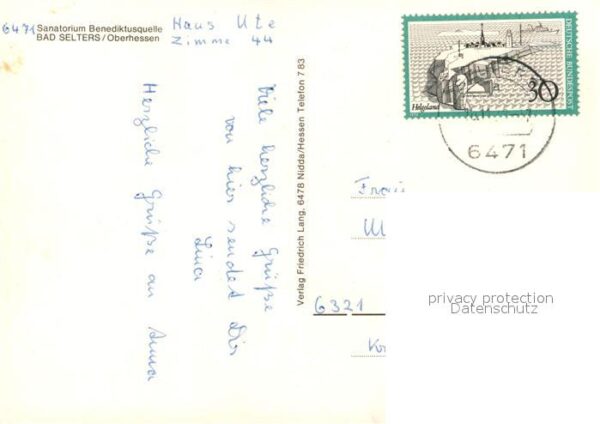 6471 Sanatorium Benediktusquelle
BAD SELTERS/Oberhessen
Haus Ute
Zimme 44
Viele herzliche Grüße
von hier sendet Dir
Lina
Herzliche Grüße an Anna
Verlag Friedrich Lang, 6478 Nidda/Hessen Telefon 7 83
DEUTSCHE BUNDESPOST
Helgoland
30
6471
6321
privacy protection
Datenschutz